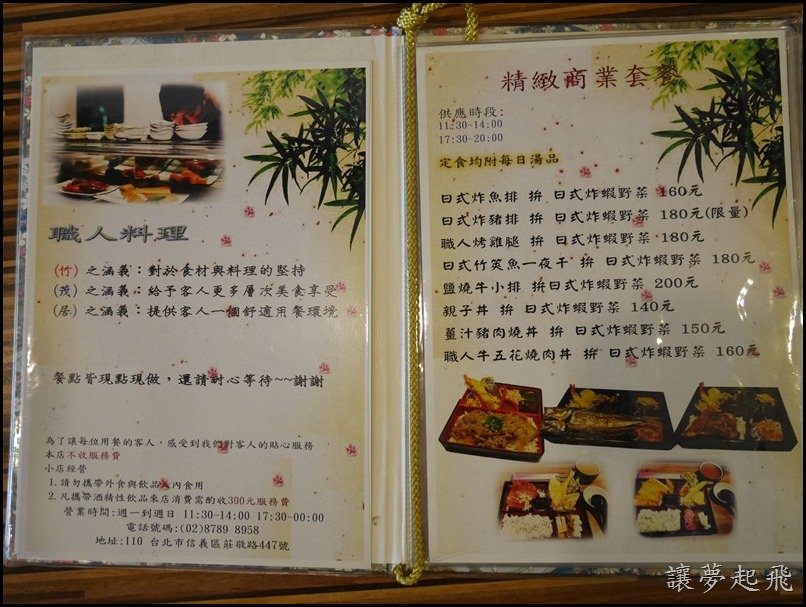 職人料理
(竹) 之涵義：對於食材與料理的堅持
(茂) 之涵義：給予客人更多層次美食享受
(居) 之涵義：提供客人一個舒適用餐環境
餐點皆現點現做，還請耐心等待~~謝謝
為了讓每位用餐的客人，感受到我們對客人的貼心服務
本店不收服務費
小店經營
1.請勿攜帶外食與飲品入內食用
2.凡攜帶酒精性飲品來店消費需酌收300元服務費
營業時間:週一到週日 11:30-14:00 17:30-00:00
電話號碼:(02)8789 8958
地址:110 台北市信義區莊敬路447號
精緻商業套餐
供應時段:
11:30-14:00
17:30-20:00
定食均附每日湯品
日式炸魚排 拚 日式炸蝦野菜 160元
日式炸豬排 拚 日式炸蝦野菜 180元(限量)
職人烤雞腿 拚 日式炸蝦野菜 180元
日式竹筴魚一夜干 拚 日式炸蝦野菜 180元
鹽燒牛小排 拚日式炸蝦野菜 200元
親子丼 拚 日式炸蝦野菜 140元
薑汁豬肉燒丼 拚 日式炸蝦野菜 150元
職人牛五花燒肉丼 拚 日式炸蝦野菜 160元
讓夢起飛